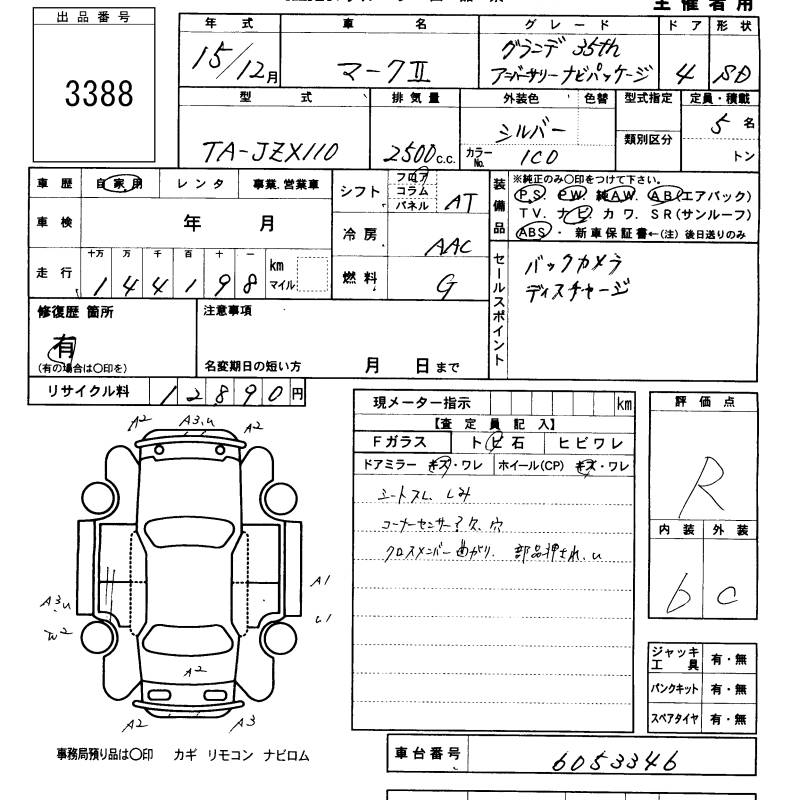 主催者用
出品番号
3388
年式 車名 グレード ドア 形状
15/12月 マークII グランデ 35th アニバーサリーナビパッケージ 4 SD
型式 排気量 外装色 色替 型式指定 定員・積載
TA-JZX110 2500c.c. シルバー 類別区分 5名
カラーNo. 1C0 トン
車歴 自家用 レンタ 事業.営業車
シフト フロア コラム パネル AT
装備品 ※純正のみ○印をつけて下さい。
P.S. P.W. 純A.W. A.B(エアバッグ)
T.V. ナビ カワ. S.R(サンルーフ)
ABS・新車保証書←(注)後日送りのみ
車検 年 月
冷房 AAC
走行 十万 万 千 百 十 一 km マイル
1 4 4 1 9 8
燃料 G
セールスポイント
バックカメラ
ディスチャージ
修復歴 箇所
有
(有の場合は○印を)
注意事項
名変期日の短い方 月 日まで
リサイクル料 12890円
現メーター指示 km
【査定員記入】
Fガラス トビ石 ヒビワレ
ドアミラー キズ・ワレ ホイール(CP) キズ・ワレ
シートスレ、しみ
コーナーセンサー 穴
クロスメンバー曲がり、部品押され、u
評価点
R
内装 外装
b C
ジャッキ工具 有・無
パンクキット 有・無
スペアタイヤ 有・無
A2 A3.u A2
A1
A3.u
u1
W2
A2
A2 A3
事務局預り品は○印 カギ リモコン ナビロム
車台番号 6053346